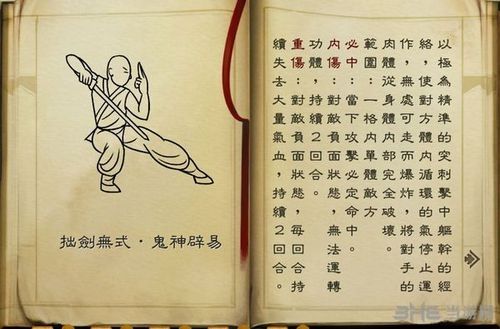 拙劍無式·鬼神辟易
以極為精準的突刺擊中軀幹的經
絡，使對方體內循環的氣停止運
作，無處可走而爆炸，將對手的
肉體從身體內部完全破壞。
範圍：一格內單體敵方
必中：當下攻擊必定命中
內傷：對敵負面狀態，無法運轉
功體，持續2回合。
重傷：對敵負面狀態，每回合持
續失去大量氣血，持續2回合。